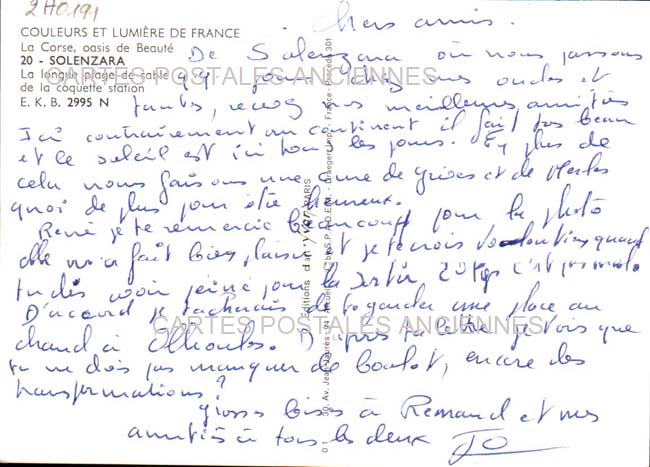 2A0191
Chers amis.
COULEURS ET LUMIÈRE DE FRANCE
La Corse, oasis de Beauté
20 - SOLENZARA
La longue plage de sable
de la coquette station
E. K. B. 2995 N
De Solenzara où nous passons
jours chez mes oncles et
tantes, recevez nos meilleures amitiés
Ici contrairement au continent il fait très beau
et le soleil est ici tous les jours. En plus de
cela nous faisons une cure de grives et de Merles
quoi de plus pour être heureux.
René je te remercie beaucoup pour la photo
elle m'a fait bien plaisir et je te crois volontiers quand
tu dis avoir peiné pour la sortir, 20 kgs c'est pas mal
D'accord je tacherais de te garder une place au
chaud à Ollioules. D'après ta lettre je vois que
tu ne dois pas manquer de boulot, encore des
transformations ?
grosses bises à Renaud et mes
amitiés à tous les deux JO
CARTES POSTALES ANCIENNES
CARTES POSTALES ANCIENNES
Editions d'art yvon PARIS
30, Av. Jean-Jaurès - 94 - Arcueil